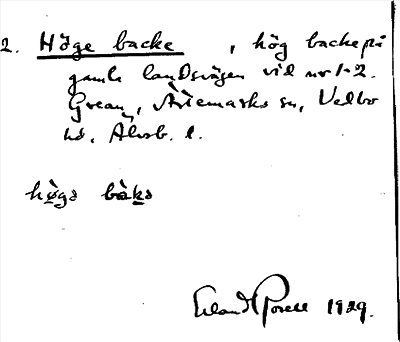 2. Höge backe , hög backe på
gamla landsvägen vid nr 1-2.
Grean, Ärtemarks sn, Vedbo
hd, Älvsb. l.
høgə bàkə
Erland Rosell 1929.